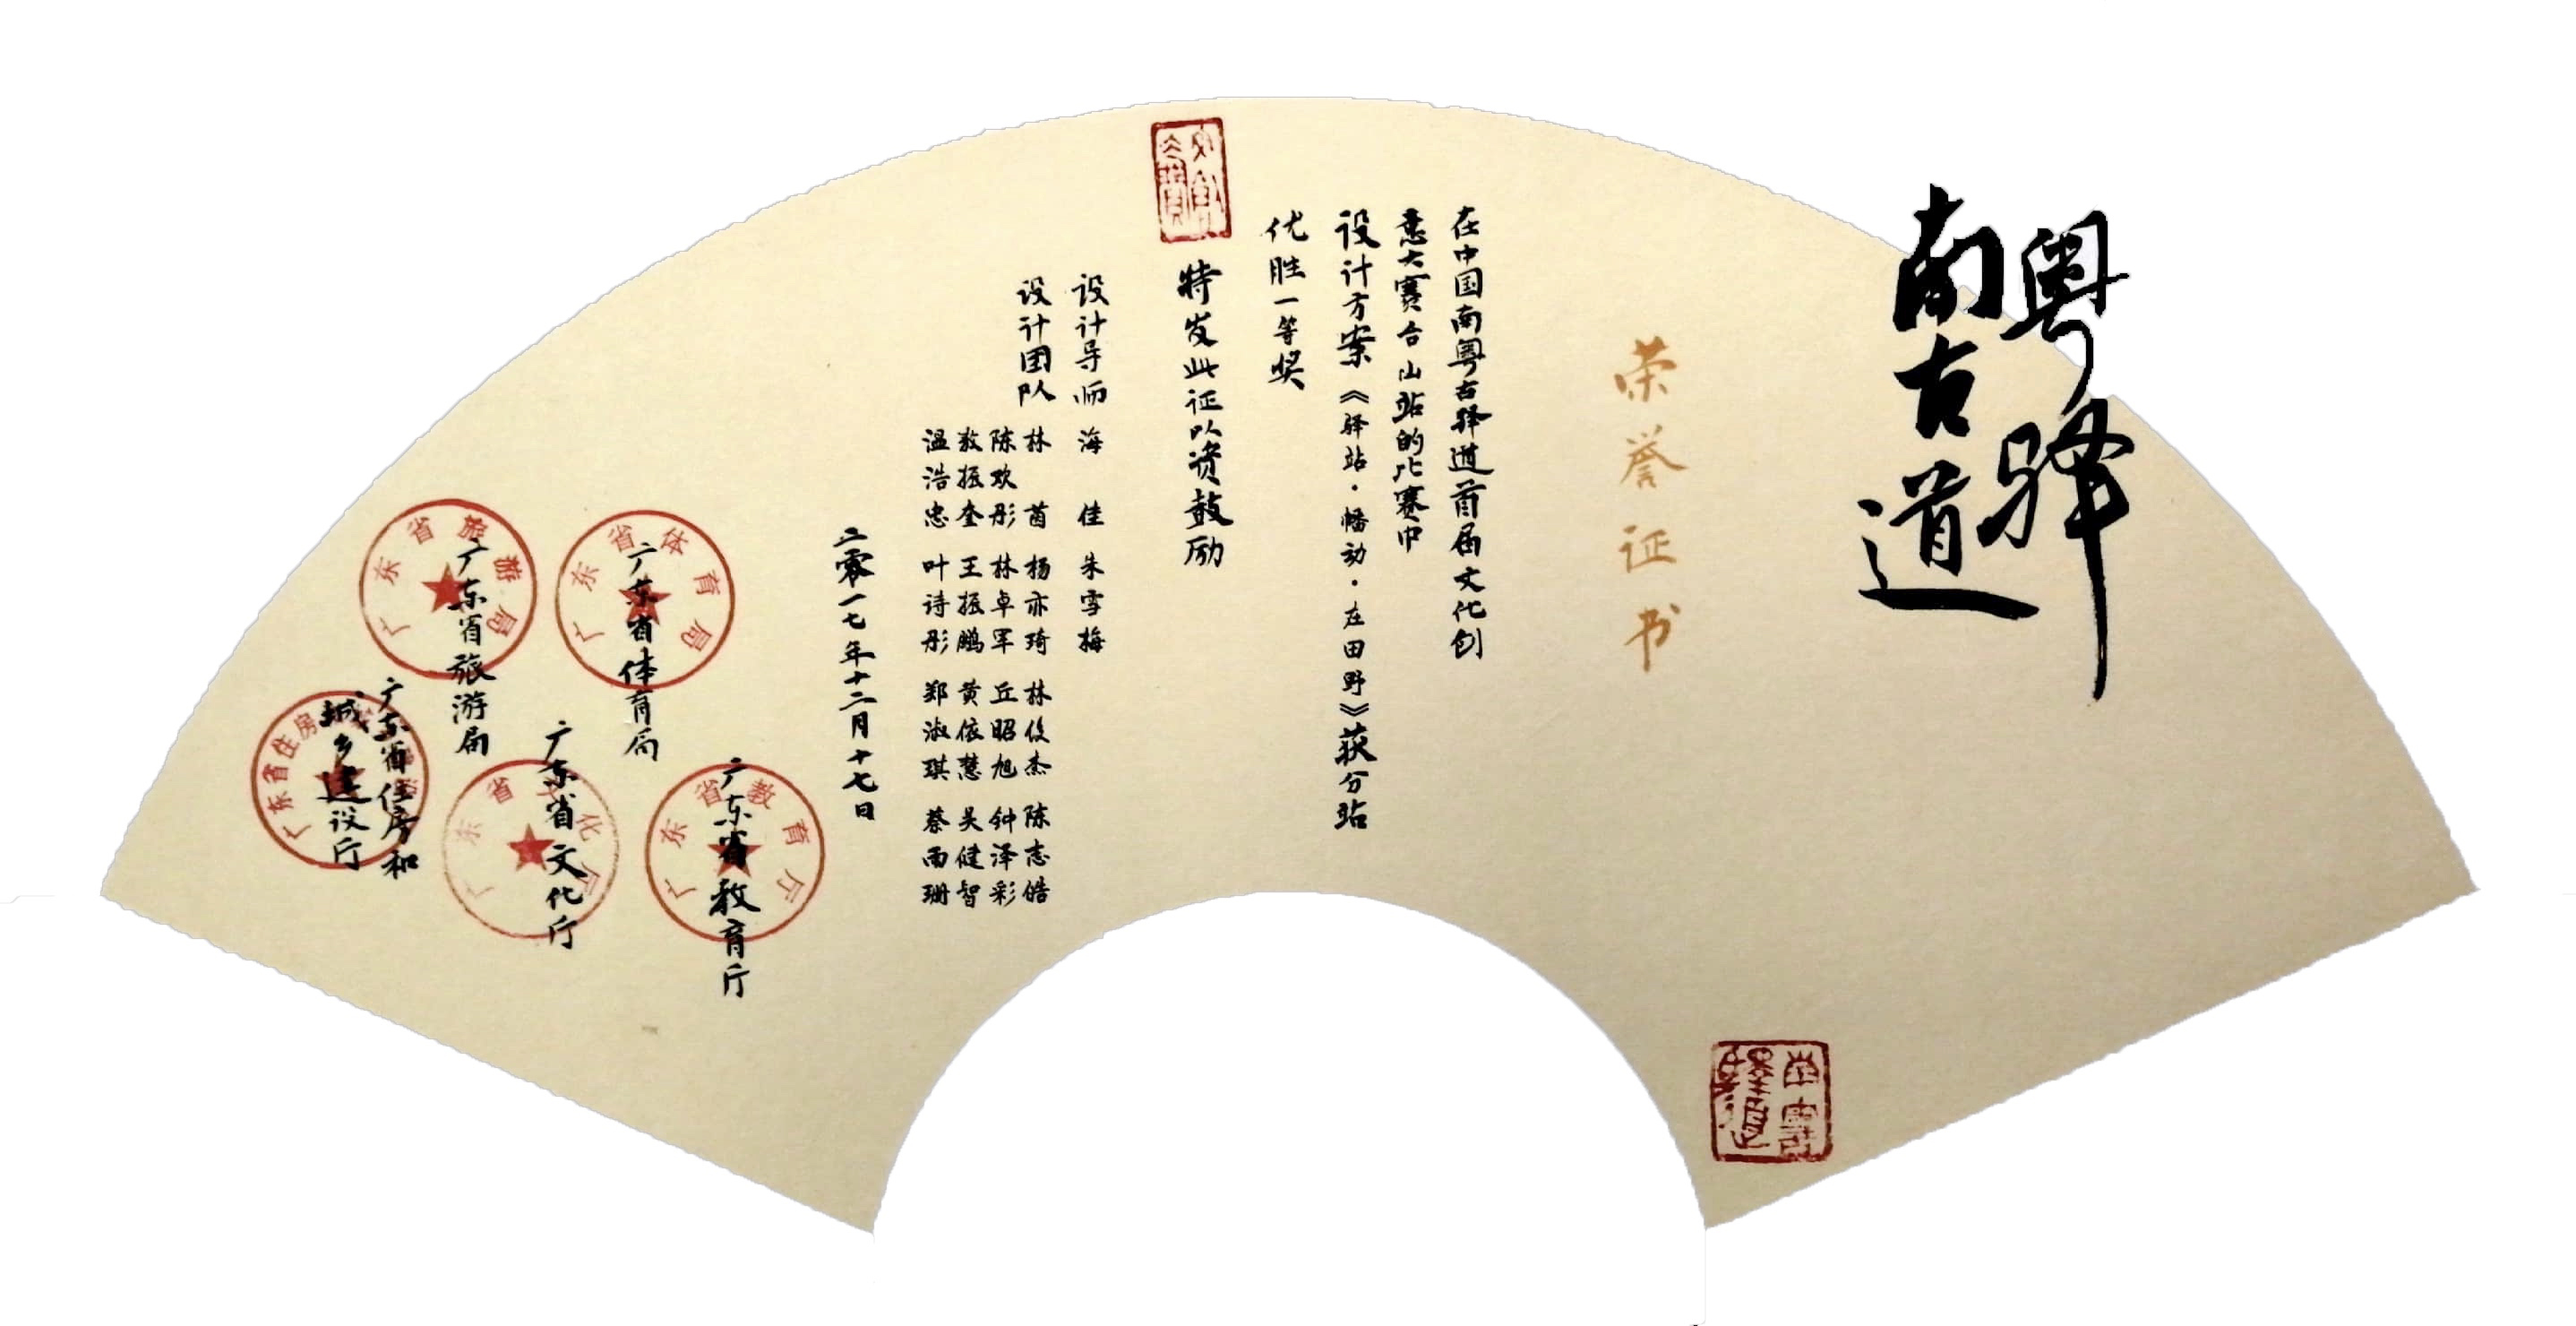 南粤古驿道
荣誉证书
在中国南粤古驿道首届文化创
意大赛台山站的比赛中
设计方案《驿站·幡动·在田野》获分站
优胜一等奖
特发此证以资鼓励
设计导师 海佳 朱雪梅
设计团队 林茵 杨亦琦 林俊杰 陈志皓
陈欢彤 林卓罕 丘昭旭 钟泽彩
敖振奎 王振鹏 黄依慧 吴健智
温浩忠 叶诗彤 郑淑琪 蔡雨珊
二零一七年十二月十七日
广东省体育局
广东省教育厅
广东省旅游局
广东省文化厅
广东省住房和
城乡建设厅
广东省体育局
广东省教育厅
广东省旅游局
广东省文化厅
广东省住房